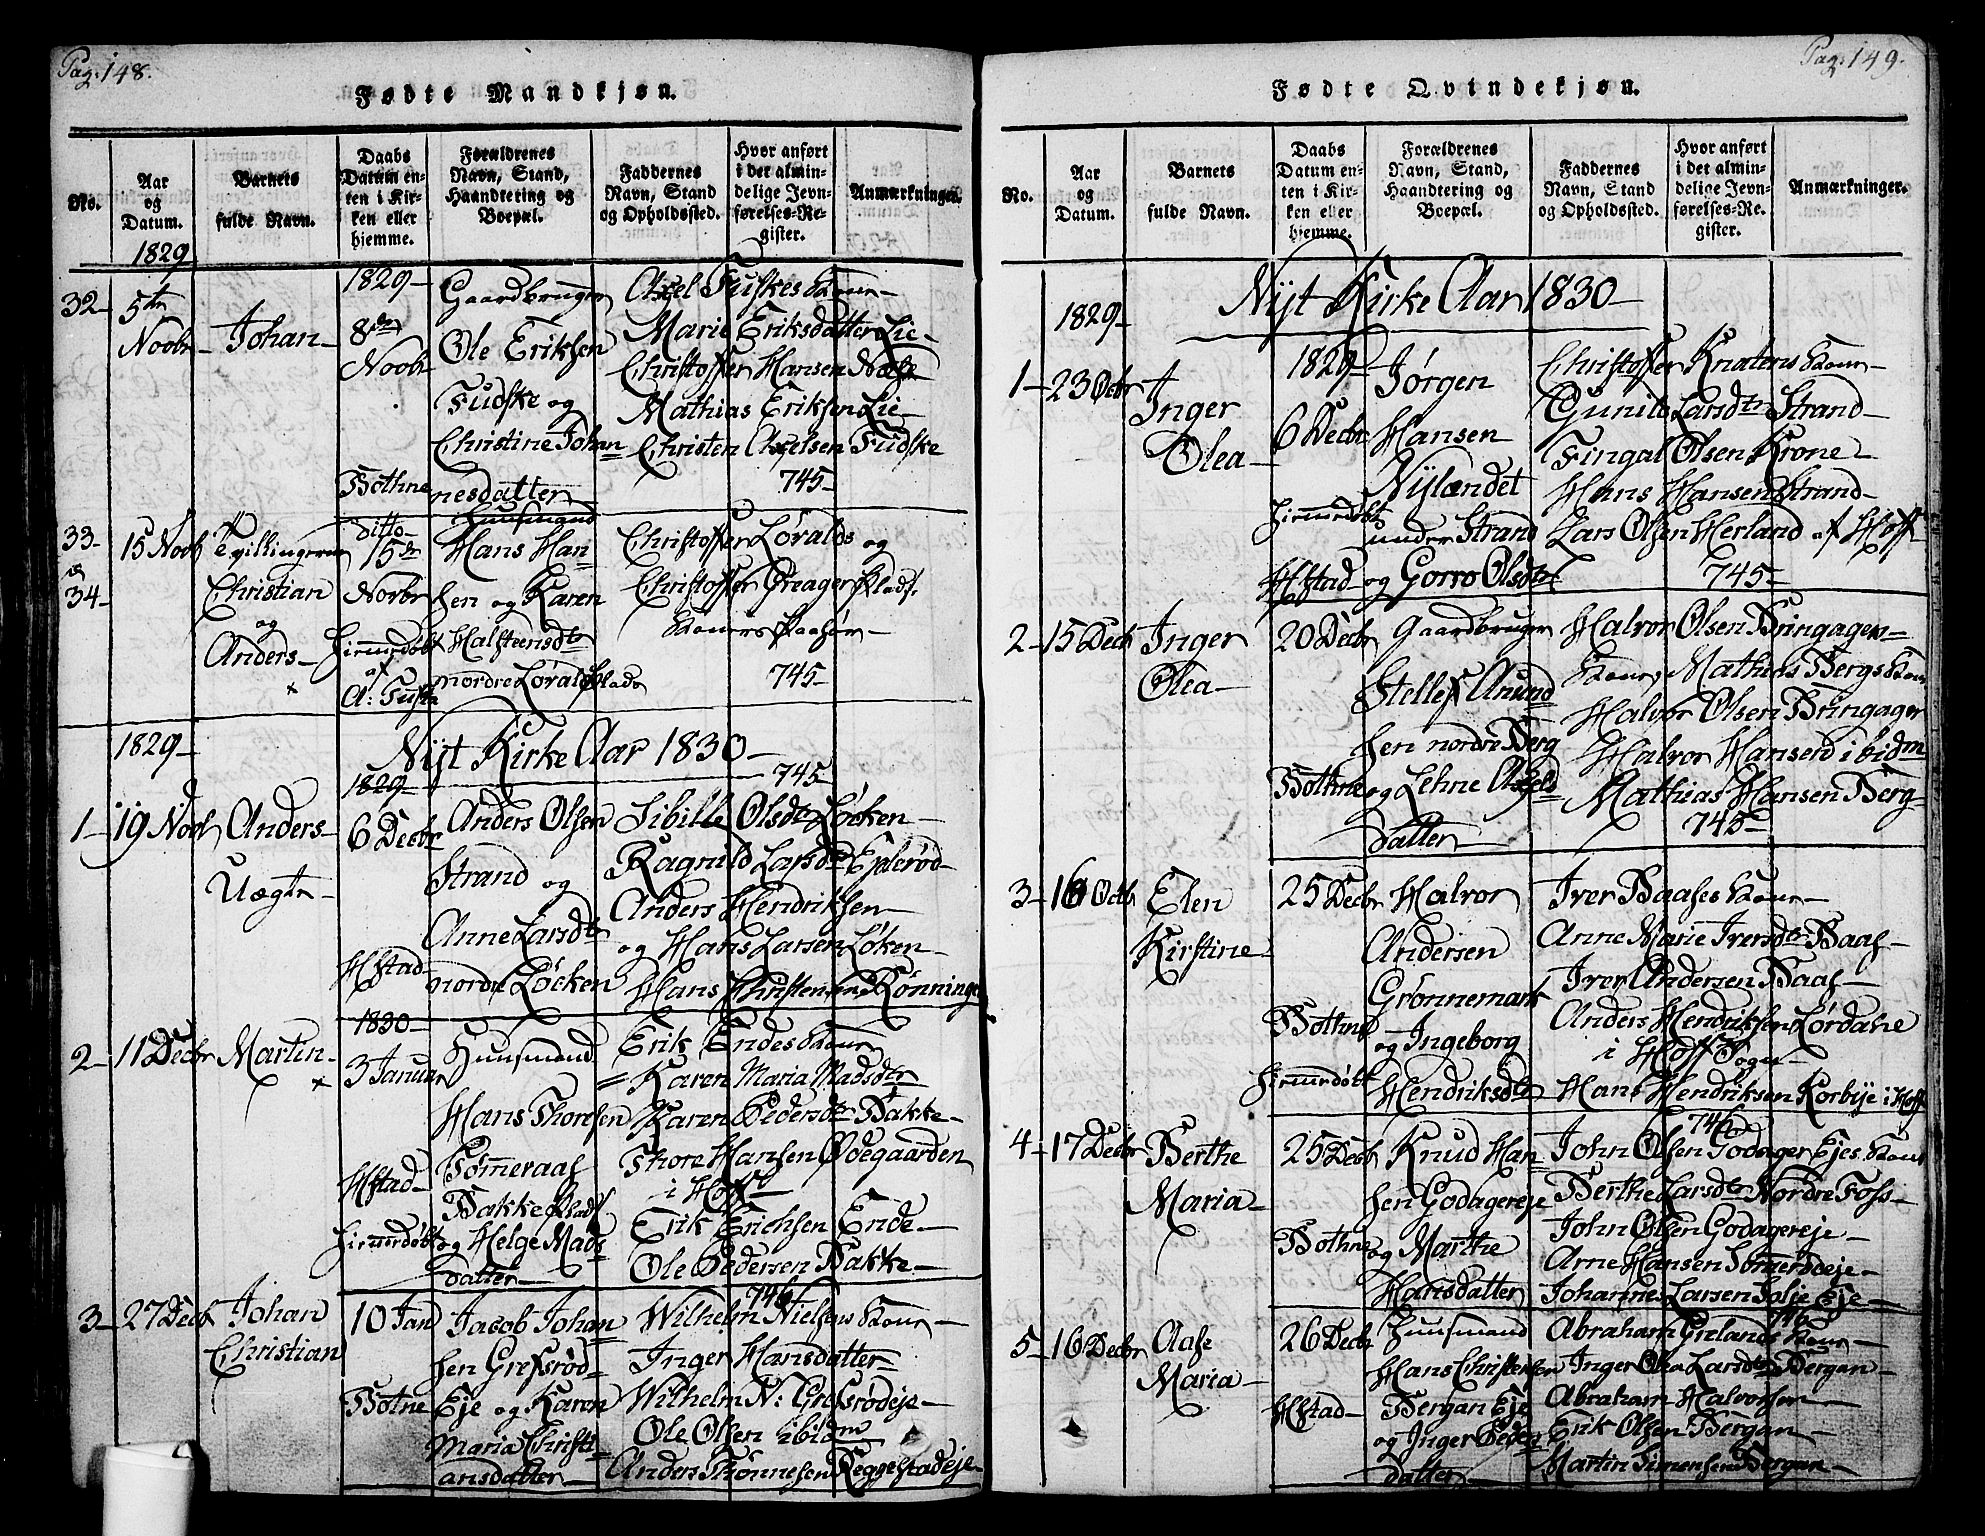 Pag: 148.
Fødte Mandkjøn.
No.
Aar og Datum.
Barnets fulde Navn.
Daabs Datum enten i Kirken eller hjemme.
Forældrenes Navn, Stand, Haandtering og Boepæl.
Faddernes Navn, Stand og Opholdssted.
Hvor anført i der almindelige Jevnførelses-Register.
Anmærkninger.
1829
32-
5te
Novbr-
Johan-
1829-
8de
Novbr
Bothne
Gaardbruger
Ole Eriksen
Fudske og
Christine Johan=
nesdatter-
Axel Fuskes Kone-
Marie Eriksdatter Lie-
Christoffer Hansen Næse
Mathias Eriksen Lie-
Christen Axelsen Fudske
745-
33-
&
34-
15 Novb
Tvillingerne
Christian
og
Anders-
ditto-
15de
Novbr
Hiemedøbt
af
Huusmand
Hans Han=
sen og Karen
Halsteensdtr
nordre Løvalds Plads
Christoffer Løvalds og
Christoffer Greager Plads,
Koners Paahør-
745-
1829-
Nyt Kirke Aar 1830-
745
1-
19 Novb
Anders-
Uægte-
1829-
6 Decbr
Hfstad-
Anders Olsen
Strand og
Anne Larsdtr
nordre Løcken
Sibille Olsdtr Løcken-
Ragnild Larsdtr Eplerød-
Anders Hendriksen-
og Hans Larsen Løken-
Hans Christensen Rønningen
2-
11 Decbr
Martin-
1830-
3 Januar
Hfstad-
Hiemedøbt
Huusmand
Hans Thoresen
Bakke Plads
og Helge Mads
datter-
Erik Endes Kone
Karen Maria Madsdtr
Karen Pedersdtr Bakke-
Thore Hansen Ødegaarden
i Hoff-
Erik Erichsen Ende-
Ole Pedersen Bakke-
746
3-
27 Decb
Johan
Christian
10 Jan
Botne
Jacob Johan=
sen Grefsrød-
Eje og Karen
Maria Christi
ansdatter-
Wilhelm Nielsens Kone-
Inger Hansdatter-
Wilhelm N: Grefsrødeje-
Ole Olsen ibidm
Anders Thønnesen Reggestadeje-
Pag: 149.
Fødte Qvindekjøn.
No.
Aar og Datum.
Barnets fulde Navn.
Daabs Datum enten i Kirken eller hjemme.
Forældrenes Navn, Stand, Haandtering og Boepæl.
Faddernes Navn, Stand og Opholdssted.
Hvor anført i det almindelige Jevnførelses-Register.
Anmærkninger.
1829-
Nyt Kirke Aar 1830-
1-
23 Octbr
Inger
Olea-
1829-
6 Decbr
Hiemmedøbt
Hfstad
Jørgen
Hansen
Nylændet
under Strand
og Gorro Olsdtr
Christoffer Knatens Kone-
Gunild Larsdtr Strand-
Fingal Olsen Krone-
Hans Hansen Strand-
Lars Olsen Herland af Hoff-
745-
2-
15 Decb
Inger
Olea-
20 Decbr
Bothne
Gaardbruger
Stellef Amund
sen nordre Berg
og Lehne Axels
datter-
Halvor Olsen Bringagers
Kone, Mathias Bergs Kone
Halvor Olsen Bringager
Halvor Hansen ibidm
Mathias Hansen Berg-
745-
3-
16 Octb
Elen
Kirstine-
25 Decbr
Bothne
Hiemedøbt
Halvor
Andersen
Grønnemark
og Ingeborg
Hendriksdtr
Iver Baases Kone-
Anne Marie Iversdtr Baas-
Iver Andersen Baas-
Anders Hendriksen Lørdahe
i Hoff Sogn-
Hans Hendriksen Korbye i Hoff
746
4-
17 Decbr
Berthe
Maria-
25 Decbr
Bothne
Knud Han=
sen Godagereje
og Marthe
Hansdatter
John Olsen Godager Ejes Kone
Berthe Larsdtr Nordre Foss-
John Olsen Godagereje-
Arne Hansen Sømerødeje-
Johannes Larsen Solje Eje-
746-
5-
16 Decbr
Aase
Maria-
26 Decbr
Hfstad-
Huusmand
Hans Christensen
Bergan Eje
og Inger Peders
datter-
Abraham Grelands Kone-
Inger Olea Larsdtr Bergan-
Abraham Halvorsen-
Erik Olsen Bergan-
Martin Simensen Bergan-